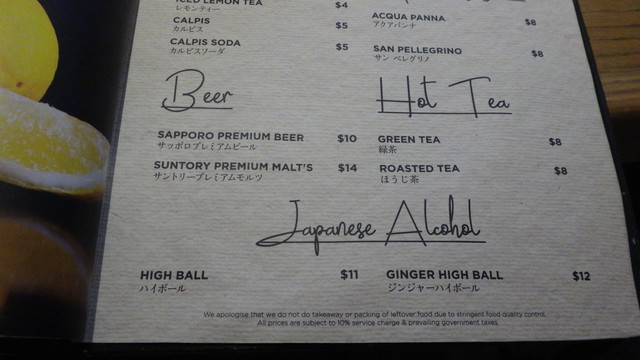 ICED LEMON TEA $4
レモンティー
CALPIS $5
カルピス
CALPIS SODA $5
カルピスソーダ
ACQUA PANNA $8
アクアパンナ
SAN PELLEGRINO $8
サン ペレグリノ
Beer
SAPPORO PREMIUM BEER $10
サッポロプレミアムビール
SUNTORY PREMIUM MALT'S $14
サントリープレミアムモルツ
Hot Tea
GREEN TEA $8
緑茶
ROASTED TEA $8
ほうじ茶
Japanese Alcohol
HIGH BALL $11
ハイボール
GINGER HIGH BALL $12
ジンジャーハイボール
We apologise that we do not do takeaway or packing of leftover food due to stringent food quality control.
All prices are subject to 10% service charge & prevailing government taxes.